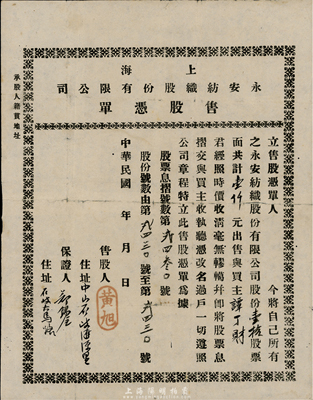 上海
永安紡織股份有限公司
售股憑單
立售股憑單人
今將自己所有
之永安紡織股份有限公司股份壹股股票
面共計壹仟元出售與買主譚丁財
君經照時價收清毫無轇轕並卽將股票息
摺交與買主收執聽憑改名過戶一切遵照
公司章程特立此售股憑單爲據
股票息摺號數第 號
股份號數由第 號至第 號
中華民國 年 月 日
售股人
黃旭
住址中山
保證人
住址
承股人籍貫地址